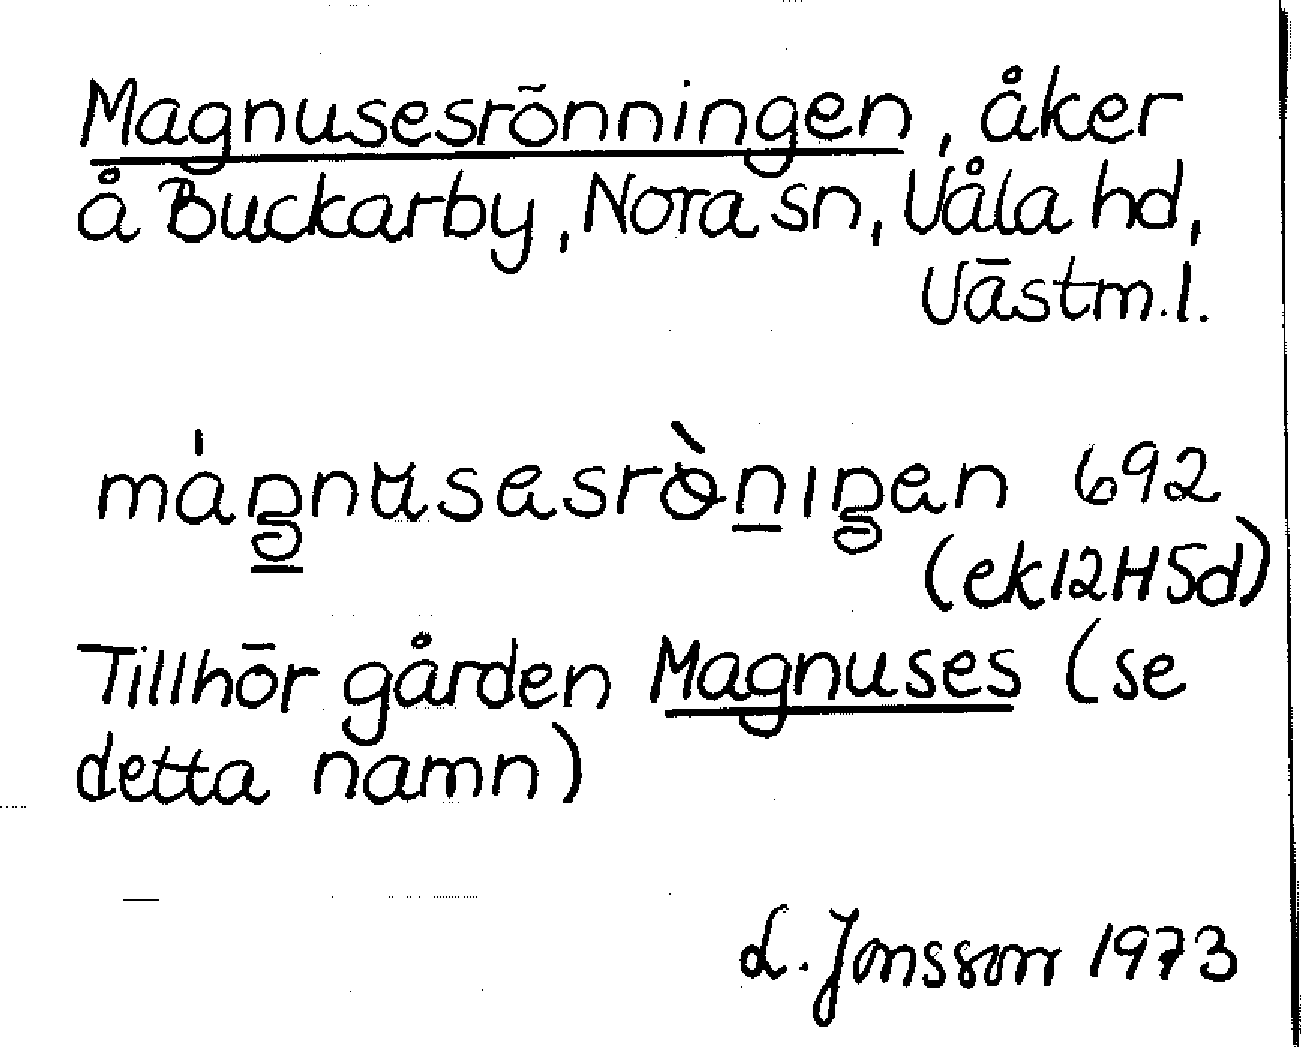 Magnusesrönningen, åker
å Buckarby, Nora sn, Våla hd,
Västm.l.
màŋnusesrònıŋen 692
(ek12H5d)
Tillhör gården Magnuses (se
detta namn)
L. Jonsson 1973